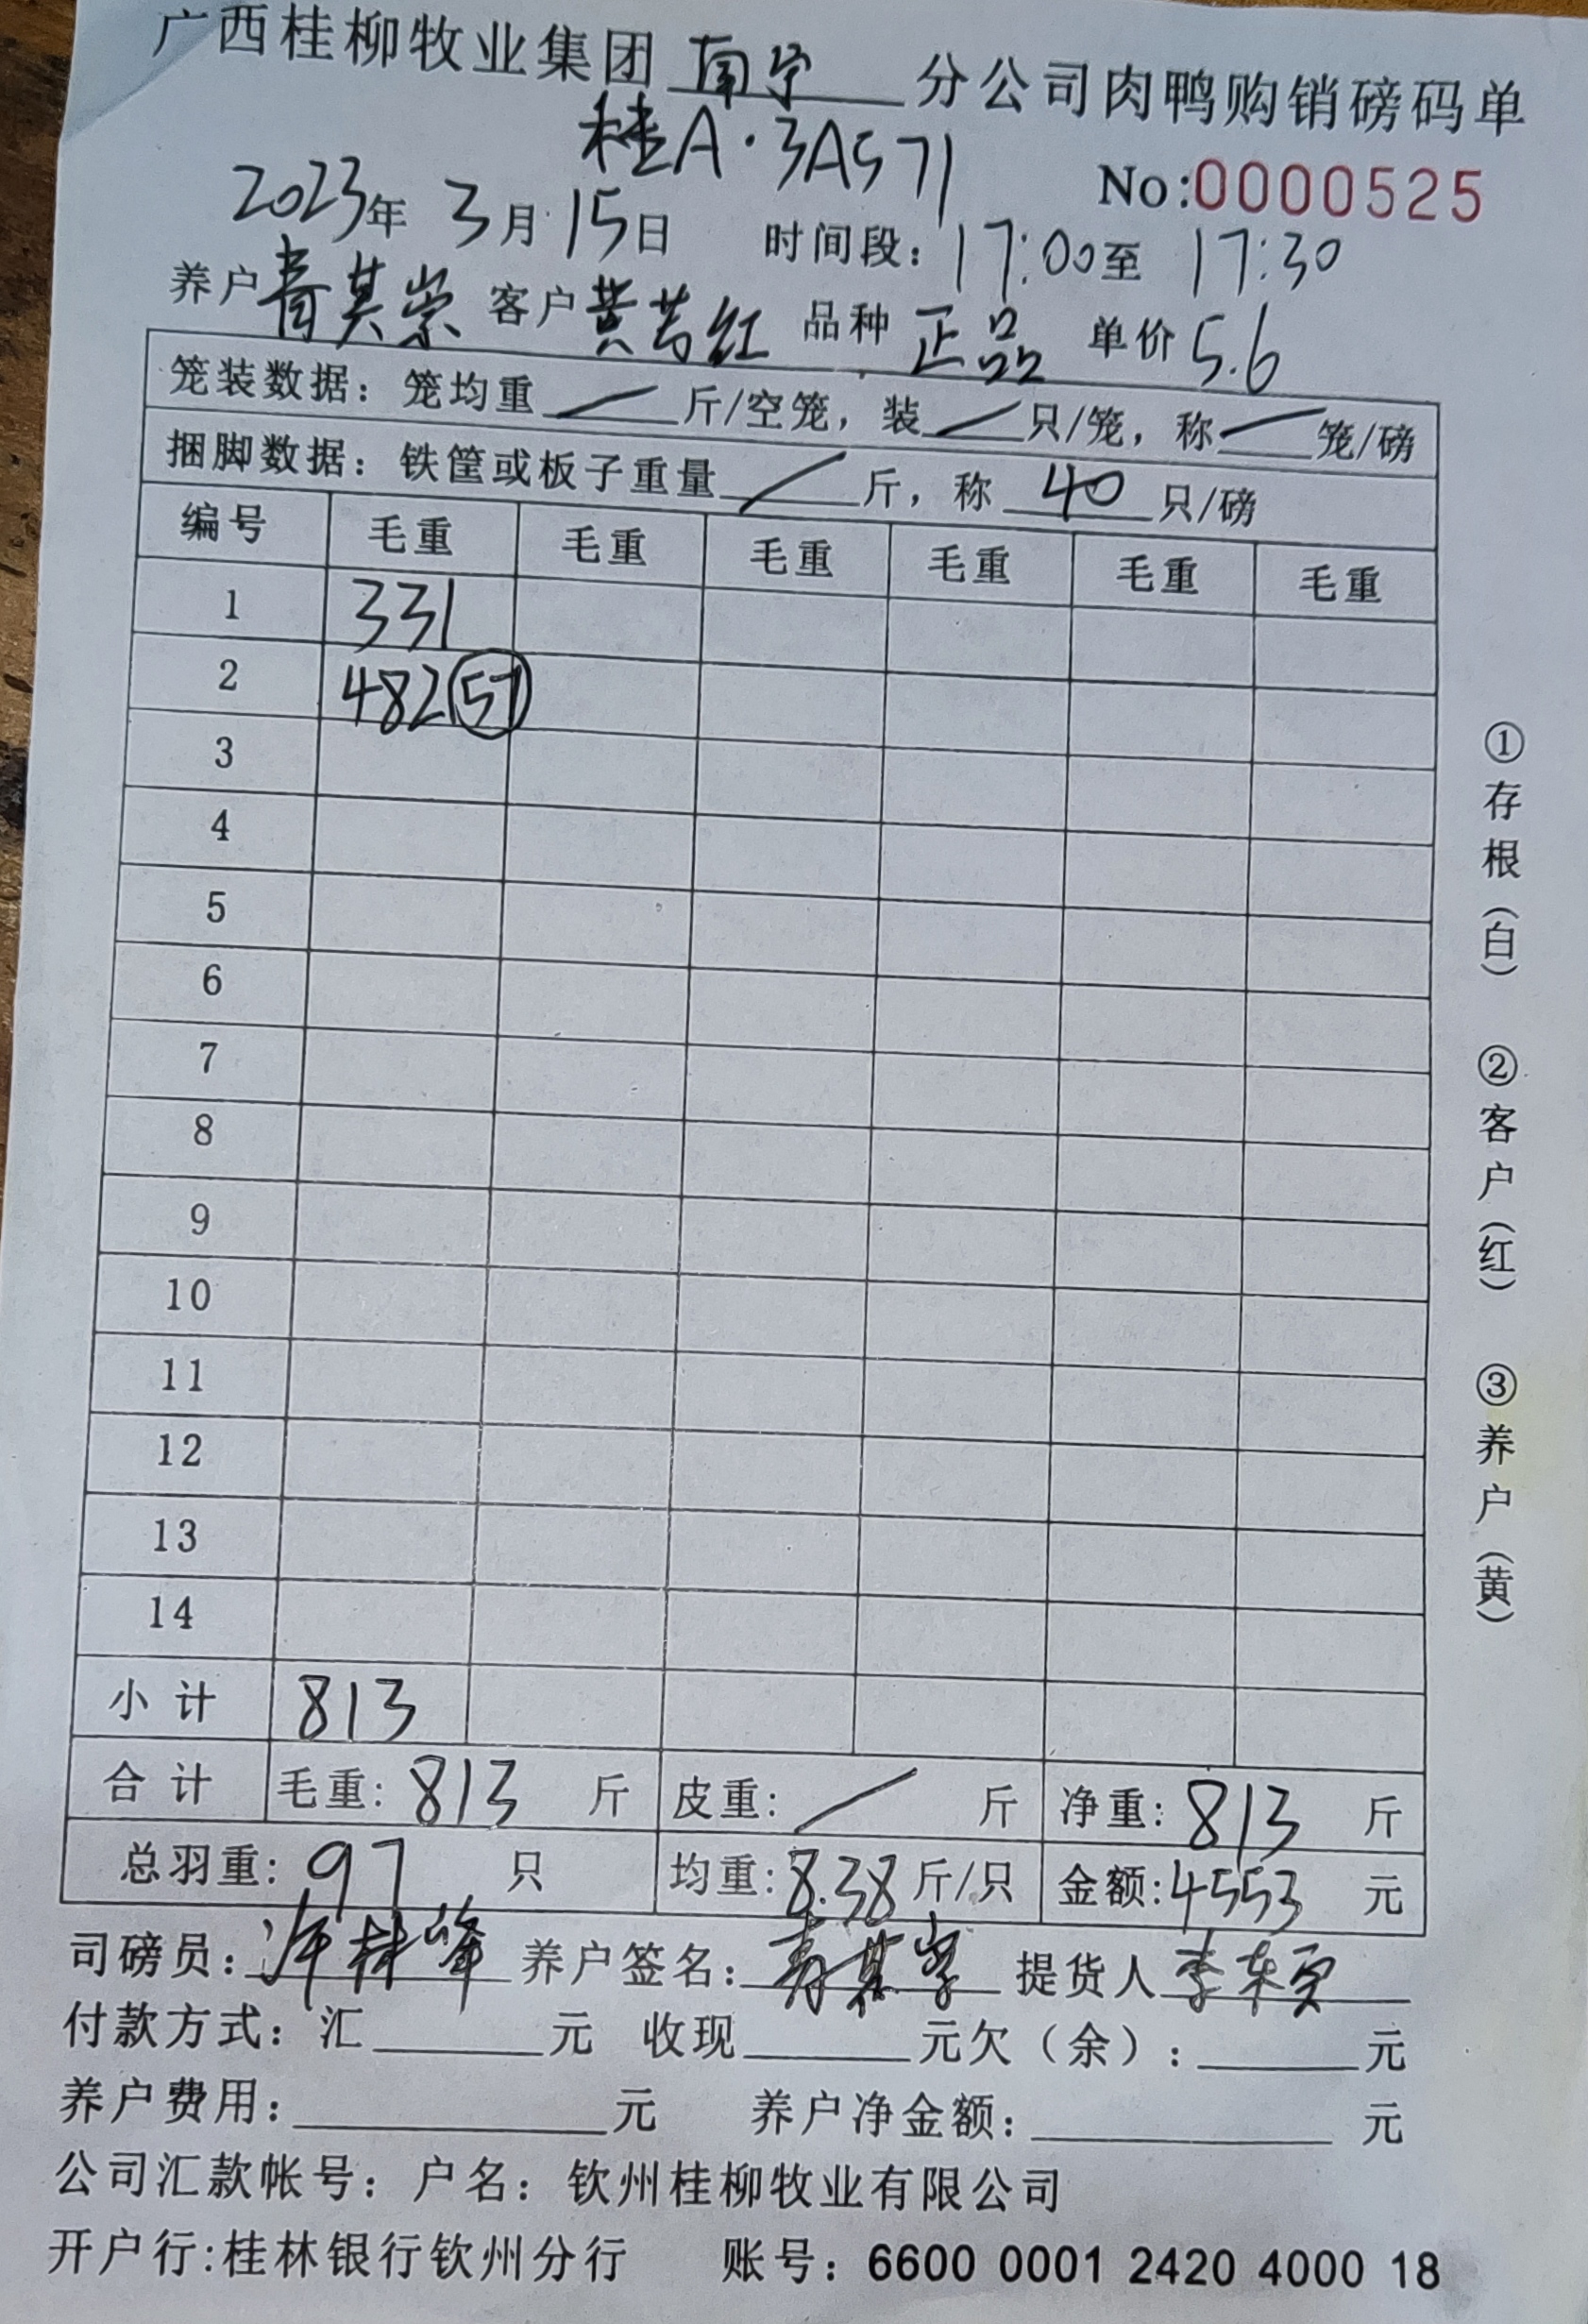 广西桂柳牧业集团 南宁 分公司肉鸭购销磅码单
桂A·3A571
No:0000525
2023年 3月 15日 时间段：17:00至 17:30
养户 青其崇 客户 黄芳红 品种 正品 单价 5.6
笼装数据：笼均重 / 斤/空笼，装 / 只/笼，称 / 笼/磅
捆脚数据：铁筐或板子重量 / 斤，称 40 只/磅
编号 毛重 毛重 毛重 毛重 毛重 毛重
1 331
2 482 57
3
4
5
6
7
8
9
10
11
12
13
14
小计 813
合计 毛重：813 斤 皮重：/ 斤 净重：813 斤
总羽重：97 只 均重：8.38 斤/只 金额：4553 元
司磅员：许林峰 养户签名：青其崇 提货人
付款方式：汇 元 收现 元欠（余）： 元
养户费用： 元 养户净金额： 元
公司汇款帐号：户名：钦州桂柳牧业有限公司
开户行:桂林银行钦州分行 账号：6600 0001 2420 4000 18
①存根（白） ②客户（红） ③养户（黄）